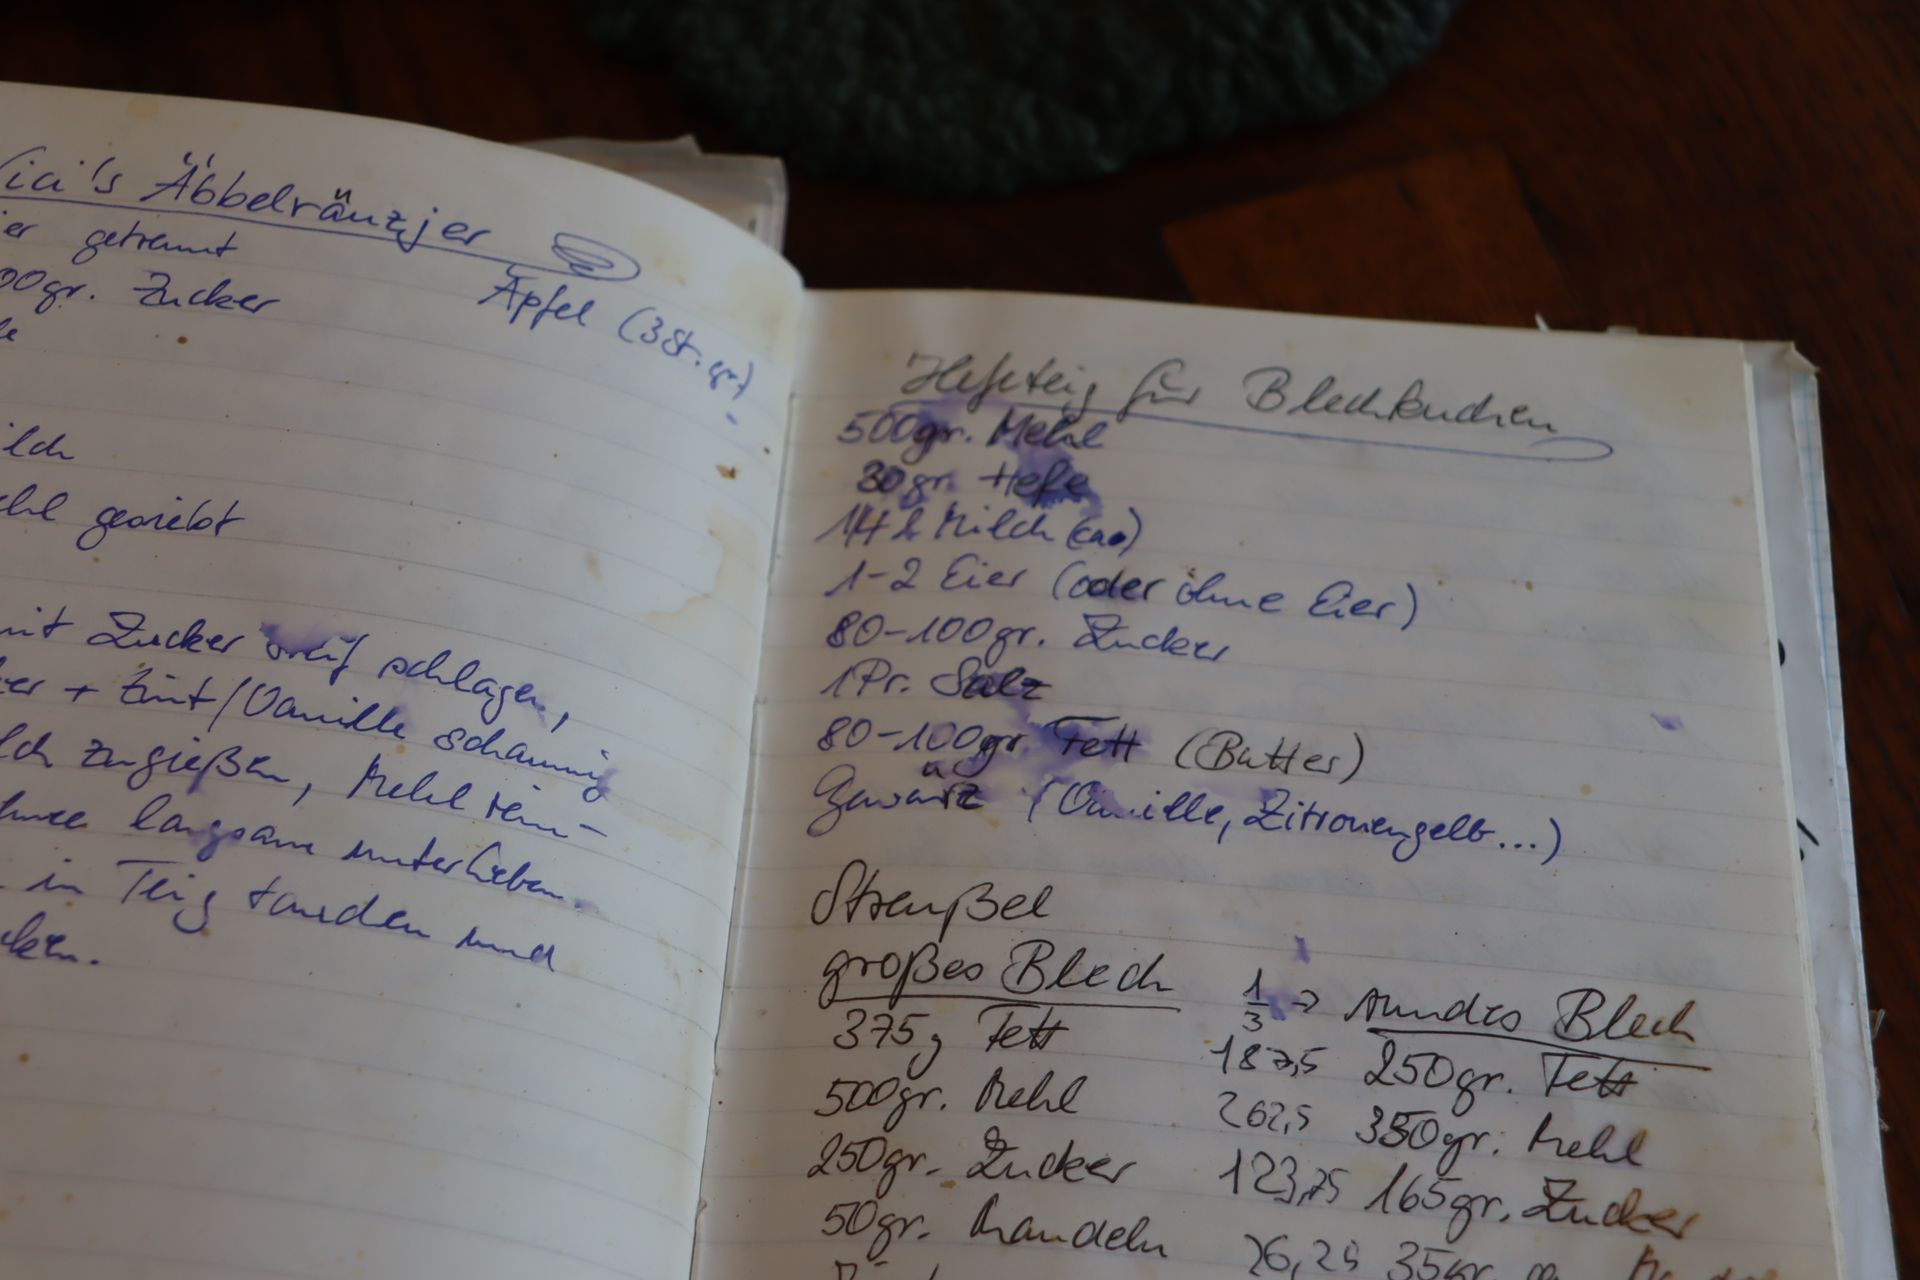 ici's Äbbelränzjer
er getrennt
00gr. Zucker
Äpfel (3 St. gr.)
ilch
ehl gesiebt
mit Zucker steif schlagen,
er + Zimt/Vanille schaumig
lch zugießen, Mehl rein-
hnee langsam unterheben.
in Teig tauchen und
cken.
Hefeteig für Blechkuchen
500gr. Mehl
30gr. Hefe
1/4 l Milch (ca.)
1-2 Eier (oder ohne Eier)
80-100gr. Zucker
1 Pr. Salz
80-100gr. Fett (Butter)
Gewürz (Vanille, Zitronengelb...)
Streußel
großes Blech 1/3 → rundes Blech
375g Fett 187,5 250gr. Fett
500gr. Mehl 262,5 350gr. Mehl
250gr. Zucker 123,75 165gr. Zucker
50gr. Mandeln 26,25 35gr.